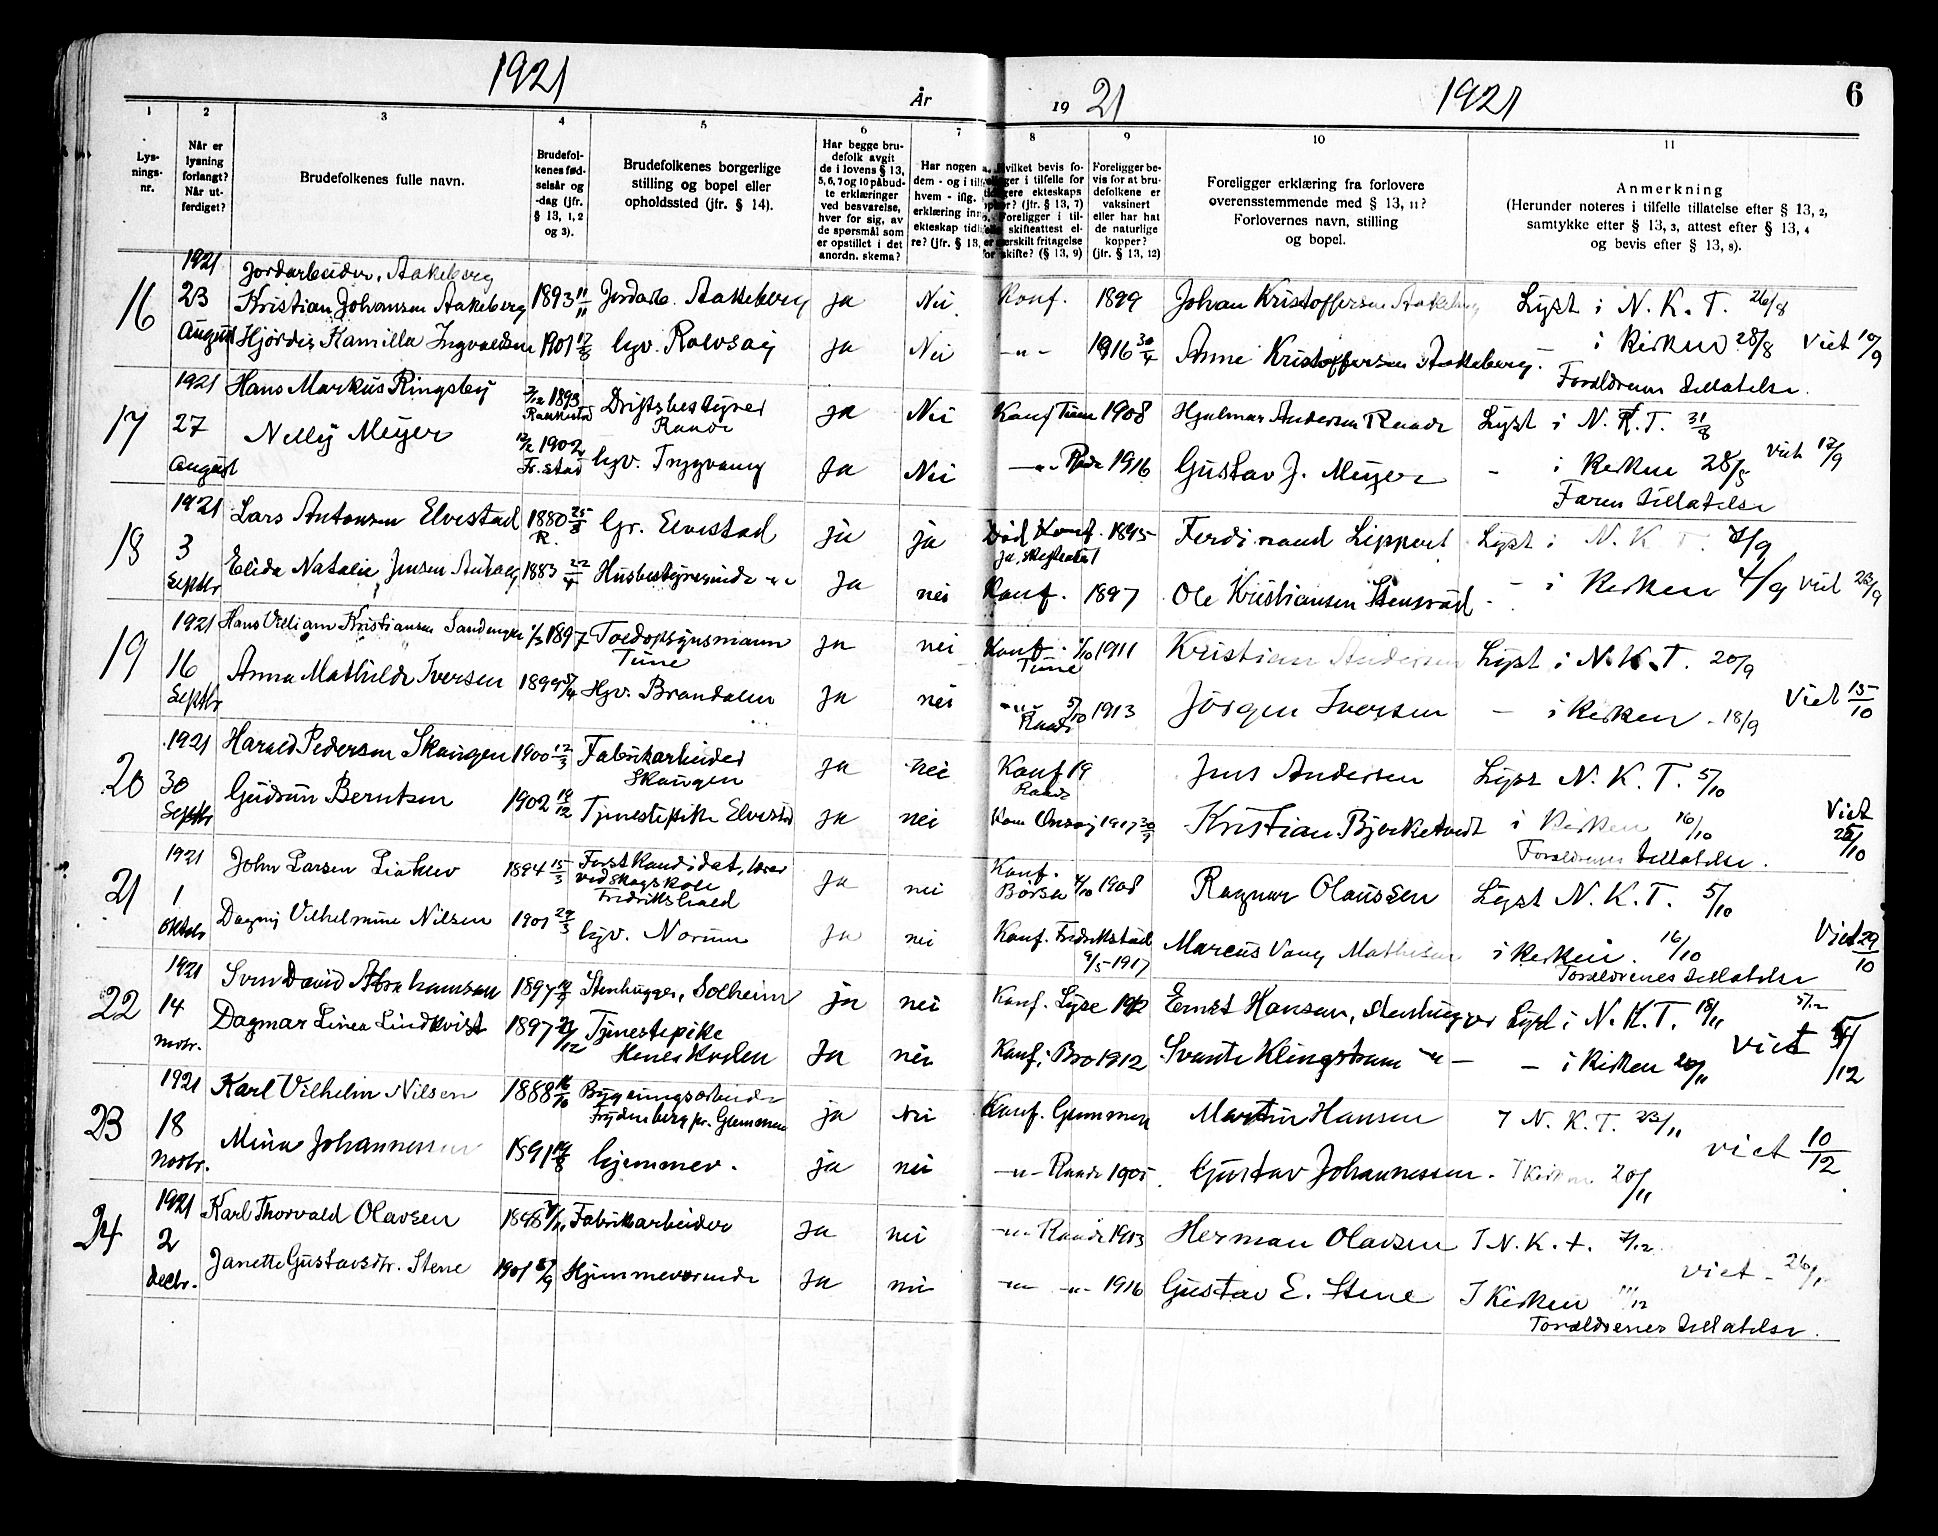 1921
År
19 21
1921
6
1
2
3
4
5
6
7
8
9
10
11
Lys-
nings-
nr.
Når er
lysning
forlangt?
Når ut-
ferdiget?
Brudefolkenes fulle navn.
Brudefol-
kenes fød-
selsår og
-dag (jfr.
§ 13, 1, 2
og 3).
Brudefolkenes borgerlige
stilling og bopel eller
opholdssted (jfr. § 14).
Har begge bru-
defolk avgit
de i lovens § 13,
5, 6, 7 og 10 påbud-
te erklæringer
ved besvarelse,
hver for sig, av
de spørsmål som
er opstillet i det
anordn. skema?
Har nogen a
dem - og i til
hvem - ifg.
erklæring inn
ekteskap tidl
re? (jfr. § 13,
Foreligger be-
vis for at bru-
defolkene er
vaksinert
eller har hat
de naturlige
kopper?
(jfr. § 13, 12)
Foreligger erklæring fra forlovere
overensstemmende med § 13, 11?
Forlovernes navn, stilling
og bopel.
Anmerkning
(Herunder noteres i tilfelle tillatelse efter § 13, 2,
samtykke efter § 13, 3, attest efter § 13, 4
og bevis efter § 13, 8).
16
1921
23
August
Jordarbeider, Aakeberg
Kristian Johansen Aakeberg 1893 11/11 Jordarb. Aakeberg ja Nei Konf. 1899 Johan Kristoffersen Aakeberg Lyst i N. K. T. 26/8
Hjördis Kamilla Ingvaldsen 1901 17/8 hjv. Rolvsöy ja Nei -"- 1916 Anne Kristoffersen Aakeberg - i Kirken 28/8 Viet 10/9
Foreldrenes tillatelse.
17
1921
27
August
Hans Markus Ringsby 1893 Driftsbestyrer Raade ja Nei Konf Tune 1908 Hjalmar Andersen Raade Lyst i N. K. T. 31/8
Nelly Meyer 1902 Fr.stad hjv. Trygvang ja Nei -"- Raade 1916 Gustav J. Meyer - i Kirken 28/8 Viet 17/9
Faren tillatelse
18
1921
3
Septbr
Lars Antonsen Elvestad 1880 25/8 R. Gr. Elvestad ja ja Död Konf. 1895 Ferdinand Lippert Lyst i N. K. T. /9
Elida Natalie Jensen 1883 22/4 Husbestyrerinde -"- ja nei Konf. 1897 Ole Kristiansen Stensröd - i Kirken 4/9 Viet 23/9
19
1921
16
Septbr
Hans William Kristiansen 1897 Toldopsynsmann Tune ja nei Konf. 1/10 1911 Tune Kristian Andersen Lyst i N. K. T. 20/9
Anna Mathilde Iversen 1899 Hjv. Brandalen ja nei -"- 5/10 1913 Raade Jörgen Iversen - i Kirken 18/9 Viet 15/10
20
1921
30
Septbr
Harald Pedersen Skaugen 1900 12/3 Fabrikarbeider Skaugen ja nei Konf 19 Raade Jens Andersen Lyst N. K. T. 5/10
Gudrun Berntsen 1902 19/12 Tjenestepike Elvestad ja nei Konf Onsöy 1917 30/9 Kristian Bjerketvedt i Kirken 16/10 Viet 25/10
Foreldrenes tillatelse.
21
1921
1
Oktobr
John Larsen 1894 15/3 Forstkandidat, lærer ved Skogskole Fredrikshald ja nei Konf. Börsa 4/10 1908 Ragnar Olaussen Lyst N. K. T. 5/10
Dagny Vilhelmine Nilsen 1901 29/3 hjv. Norum ja nei Konf. Fredrikstad 9/5-1917 Marcus Vang Mathisen i Kirken. 16/10 Viet 29/10
Foreldrenes tillatelse
22
1921
14
novbr.
Sven David Abrahamsson 1897 Stenhugger, Solheim ja nei Konf. Lyse 1912 Ernst Hansen, stenhugger Lyst i N. K. T. 18/11 5/12
Dagmar Linea Lindkvist 1897 /12 Tjenestepike ja nei Konf. Bro 1912 Svante Klingstram -"- - i Kirken 20/11 Viet /12
23
1921
18
Novbr.
Karl Vilhelm Nilsen 1888 16/10 Bygningsarbeider Frydenberg pr. Glemmen ja nei Konf. Glemmen Martin Hansen I N. K. T. 23/11
Mina Johannessen 1891 19/8 hjemmev. ja nei -"- Raade 1905. Gustav Johannessen. I Kirken 20/11 viet 10/12
24
1921
2
decbr.
Karl Thorvald Olavsen Fabrikarbeider ja nei -"- Raade 1913 Herman Olavsen I N. K. T. 7/12
Janette Gustavsdtr. Stene 1901 /9 Hjemmeværende ja nei -"- -"- 1916 Gustav E. Stene I Kirken /12 viet 26/1
Foreldrenes tillatelse.